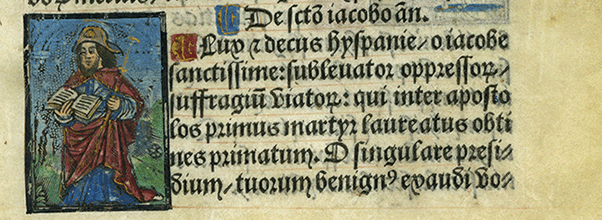 De scto iacobo añ.
O Lux ⁊ decus hyspanie/o iacobe
sanctissime: subleuator oppressoꝝ/
suffragiū viatoꝝ: qui inter aposto
los primus martyr laureatus obti
nes primatum. O singulare presi-
dium/tuorum benignꝰ exaudi vo-